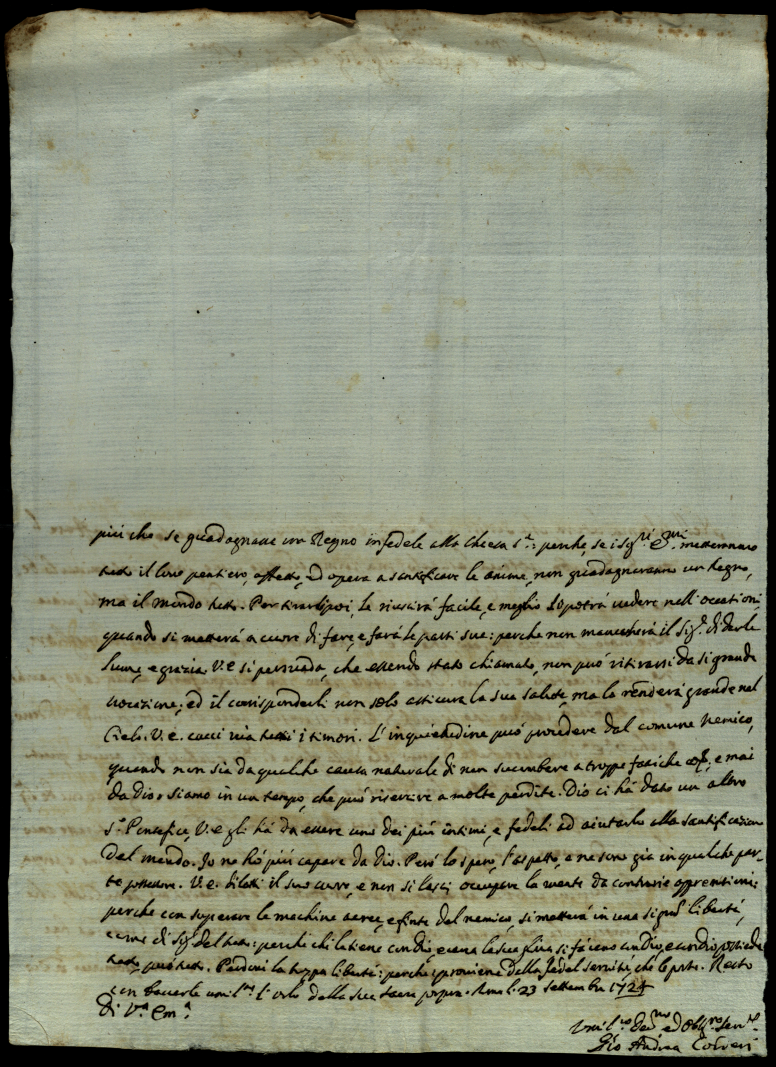 più che se guadagnasse un Regno infedele alla Chiesa S.ta: perche, se i Sig.ri E.mi metteranno
tutto il loro pensiero, affetto, ed opera a santificare le anime, non guadagneranno un Regno,
ma il mondo tutto. Per le riuscirà facile, e meglio lo potrà vedere nell'occasioni,
quando si metterà a cuore di fare, e farà le parti sue: perche non mancherà il Sig.re di darle
lume, e grazia. V.E. si persuada, che essendo stato chiamato, non può ritirarsi da sì grande
vocazione; ed il corrisponderli non solo assicura la sua salute, ma la renderà grande nel
Cielo. V.E. cacci via tutti i timori. L'inquietudine può procedere dal comune Nemico,
quando non sia da qualche causa naturale di non succumbere a troppe fatiche, e mai
da Dio. Siamo in un tempo, che può riuscire a molte perdite. Dio ci há dato un altro
S.to Pontefice, V.E. gli há da essere uno dei più intimi, e fedeli ad aiutarlo alla santificazione
del mondo. Io ne hò più capare da Dio. Però lo spero, l'aspetto, e ne sono già in qualche par-
te possessore. V.E. dilati il suo cuore, e non si lasci occupare la mente da contrarie apprensioni:
perche con superare le machine aeree, e finte del nemico, si metterà in una signoril libertà,
come di Sig.re del tutto: perche chi la tiene con Dio, e con Dio possiede
tutto, può tutto. Perdoni la troppa libertà: perche proviene dalla fedel servitù, che le porto. Resto
con baciarle umilm.te l'orlo della sua Sacra porpora. Roma li 23 Settembre 1724
Di V.ra Em.a
Umil.mo Dev.mo ed Obblig.mo Ser.re
Gio Andrea